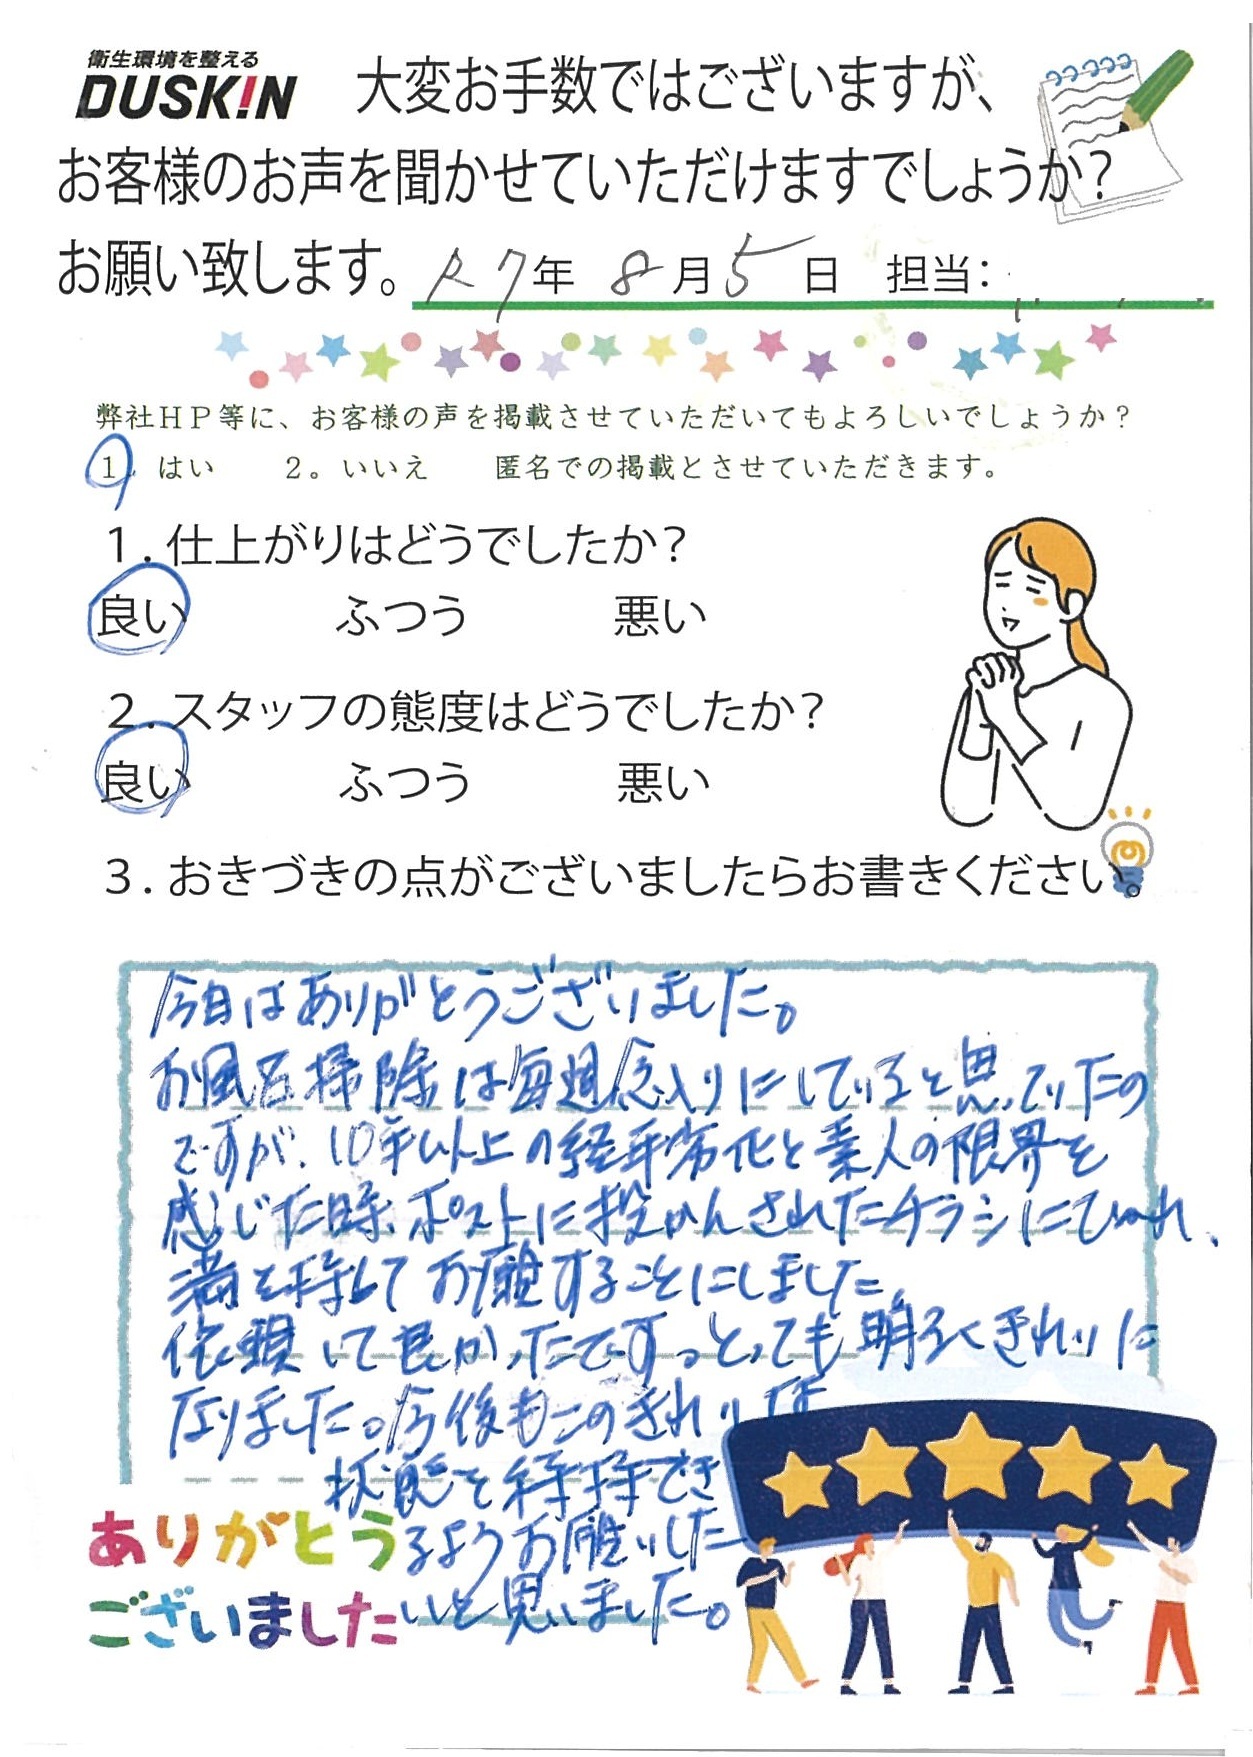 衛生環境を整える
DUSKIN
大変お手数ではございますが、
お客様のお声を聞かせていただけますでしょうか？
お願い致します。R7年 8月5日 担当：
弊社ＨＰ等に、お客様の声を掲載させていただいてもよろしいでしょうか？
1. はい 2。いいえ 匿名での掲載とさせていただきます。
１．仕上がりはどうでしたか？
良い ふつう 悪い
２．スタッフの態度はどうでしたか？
良い ふつう 悪い
３．おきづきの点がございましたらお書きください。
今日はありがとうございました。
お風呂掃除は毎週念入りにしていると思っていたの
ですが、10年以上の経年劣化と素人の限界を
感じた時、ポストに投かんされたチラシにひかれ、
満を持してお願することにしました。
依頼して良かったです。とっても明るくきれいに
なりました。今後もこのきれいな
状態を維持でき
るようお願いした
いと思いました。
ありがとう
ございました